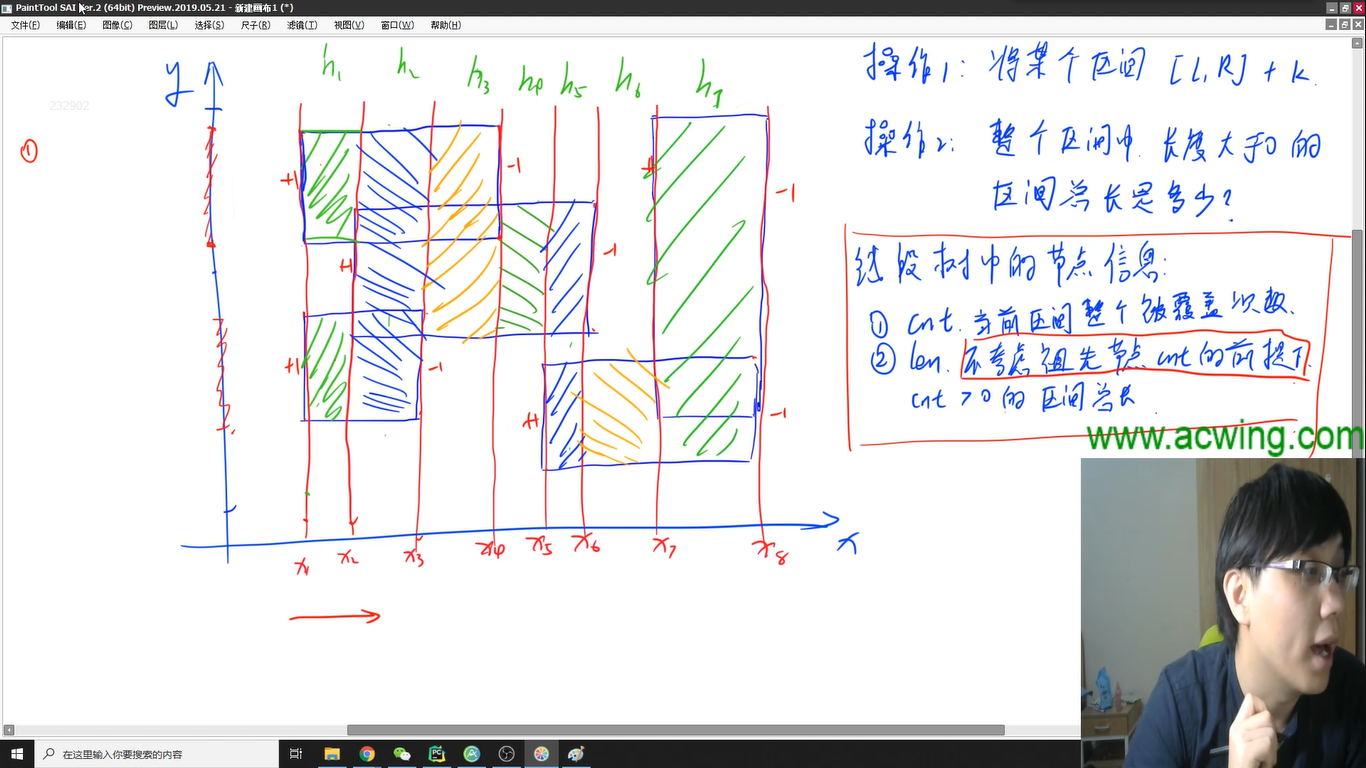 PaintTool SAI Ver.2 (64bit) Preview.2019.05.21 - 新建画布1 (*)
文件(F) 编辑(E) 图像(C) 图层(L) 选择(S) 尺子(R) 滤镜(T) 视图(V) 窗口(W) 帮助(H)
232902
①
y
h₁ h₂ h₃ h₄ h₅ h₆ h₇
+1 -1 +1 -1
+1 -1
+1 -1
+1 -1
x₁ x₂ x₃ x₄ x₅ x₆ x₇ x₈ x
操作1: 将某个区间 [L,R] + k
操作2: 整个区间中 长度大于0的
区间总长是多少?
线段树中的节点信息:
① cnt. 当前区间整个被覆盖次数.
② len. 不考虑祖先节点cnt的前提下.
cnt >0 的 区间总长
www.acwing.com
在这里输入你要搜索的内容